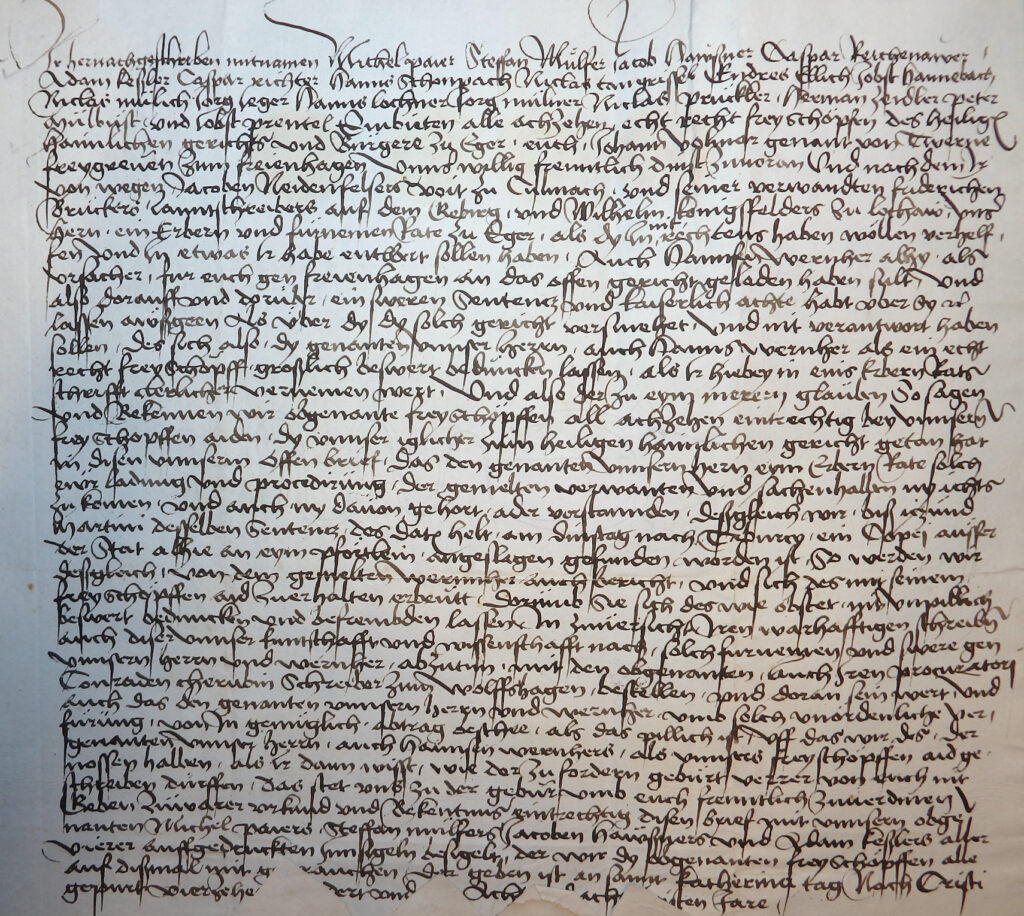 Ir hernachgeschriben mitnamen Michel paier Steffan Mulfer Jacob Hawßner Caspar Reichenawer
Adam kessler Caspar richter Hanns Schonpach Niclas Endres Ellich Jobst Hannebach
Niclas mulich Jorg Jeger Hanns lochner Jorg mulner Niclas pruckler Herman zeidler peter
und Jobst prentel Embieten alle achzehen echt recht frey schopfen des heilign
haimlichen gerichts und Burgere zu Eger euch Johann volmer genant von Twerne
freygreven zum freienhagen unns willig freuntlich dinst zuvoran Und nachdem Ir
von wegen Jacoben Neidenfelsers voit zu Culmach und seiner verwandten friderichen
Bruckers lanntschreibers auf dem Gebirg und Wilhelm konigsfelders zu lochaw unns
hern ein Erbern und furnemen Rate zu Eger als dy In mit rechtens haben wollen verhelf
fen und In etwas Ir habe entwert sollen haben Auch Hannsen wernher alhy als
ursacher fur euch gen freyenhagen an das offen gericht geladen haben sult und
also dorauff und doruber ein sweren Sentencz und kaiserlich achte habt uber Sy
lassen awßgeen Als uber dy dy solch gericht versmehet und nit verantwort haben
sollen des sich also dy genanten unnser herrn auch Hanns wernher als ein echt
recht frey Schopff groslich beswert beduncken lassen als Ir hiebey in eins Erbern Rats
schrifft clerlicher vernemen wert Und also der zu eym merern glauben So sagen
und Bekennen wir obgenante frey Schopffen all achzehen eintrechtig bey unnsern
frey Schopffen aiden dy unnser iglicher zum heiligen haimlichen gericht getan hat
in disen unnserm offen brieff das den genanten unnsern hern eym Erbern Rate solch
ewr ladung und procedirung der gemelten verwanten und sachenhallen ny ichts
zu komen und auch ny davon gehort ader verstannden desgleich wir biss iczund
Martini desselben Sentencz des dat helt am dinstag nach ein Copej ausser
der Stat alhie an eym pfortlein angeslagen gefunden worden ist So werden wir
desgleich von dem gemelten wernnher auch bericht und sich des mit seinem
frey Schopffen aid zuerhalten erbeutt dorumb Sie sich des wie obstet nit unpillich
beswert beduncken und befrembden lassen In zuversicht Iren warhafftigen schreiben
auch diser unnser kuntschafft und wissenschafft nach solch furnemen und swere gen
unnsern herrn und wernher abzutun mit den obgenanten auch Iren procuratorj
Conraden Schreiber zum wolffshagen bestellen und doran sein wert und
auch das den genanten unnsern herrn und wernher umb solch unordenliche ver
furung von In gemuglich abtrag beschee als das pillich ist uff das wir des der
genanten unnser herrn auch Hannsen wernhers als unnsers freyschopffen aid ge
nossen halben als Ir dann wisst wie der zu fordern geburt verrer von euch nit
schreiben durffen das stet uns zu der gebur umb euch freuntlich zuverdinen
Geben zuwarer urkund und Bekentnus eintrechtig disen brief mit unnsern obge
nanten Michel paiers Steffan mulfers Jacoben Hawßners und Adam kesslers aller
vierer auffgedruckten Innsigeln besigelt der wir dy obgenanten frey Schopffen alle
auf dismol mit g rauchen Der geben ist an sannt katherina tag Nach Cristi
gepurt vierzehe ert und Acht ten Jare